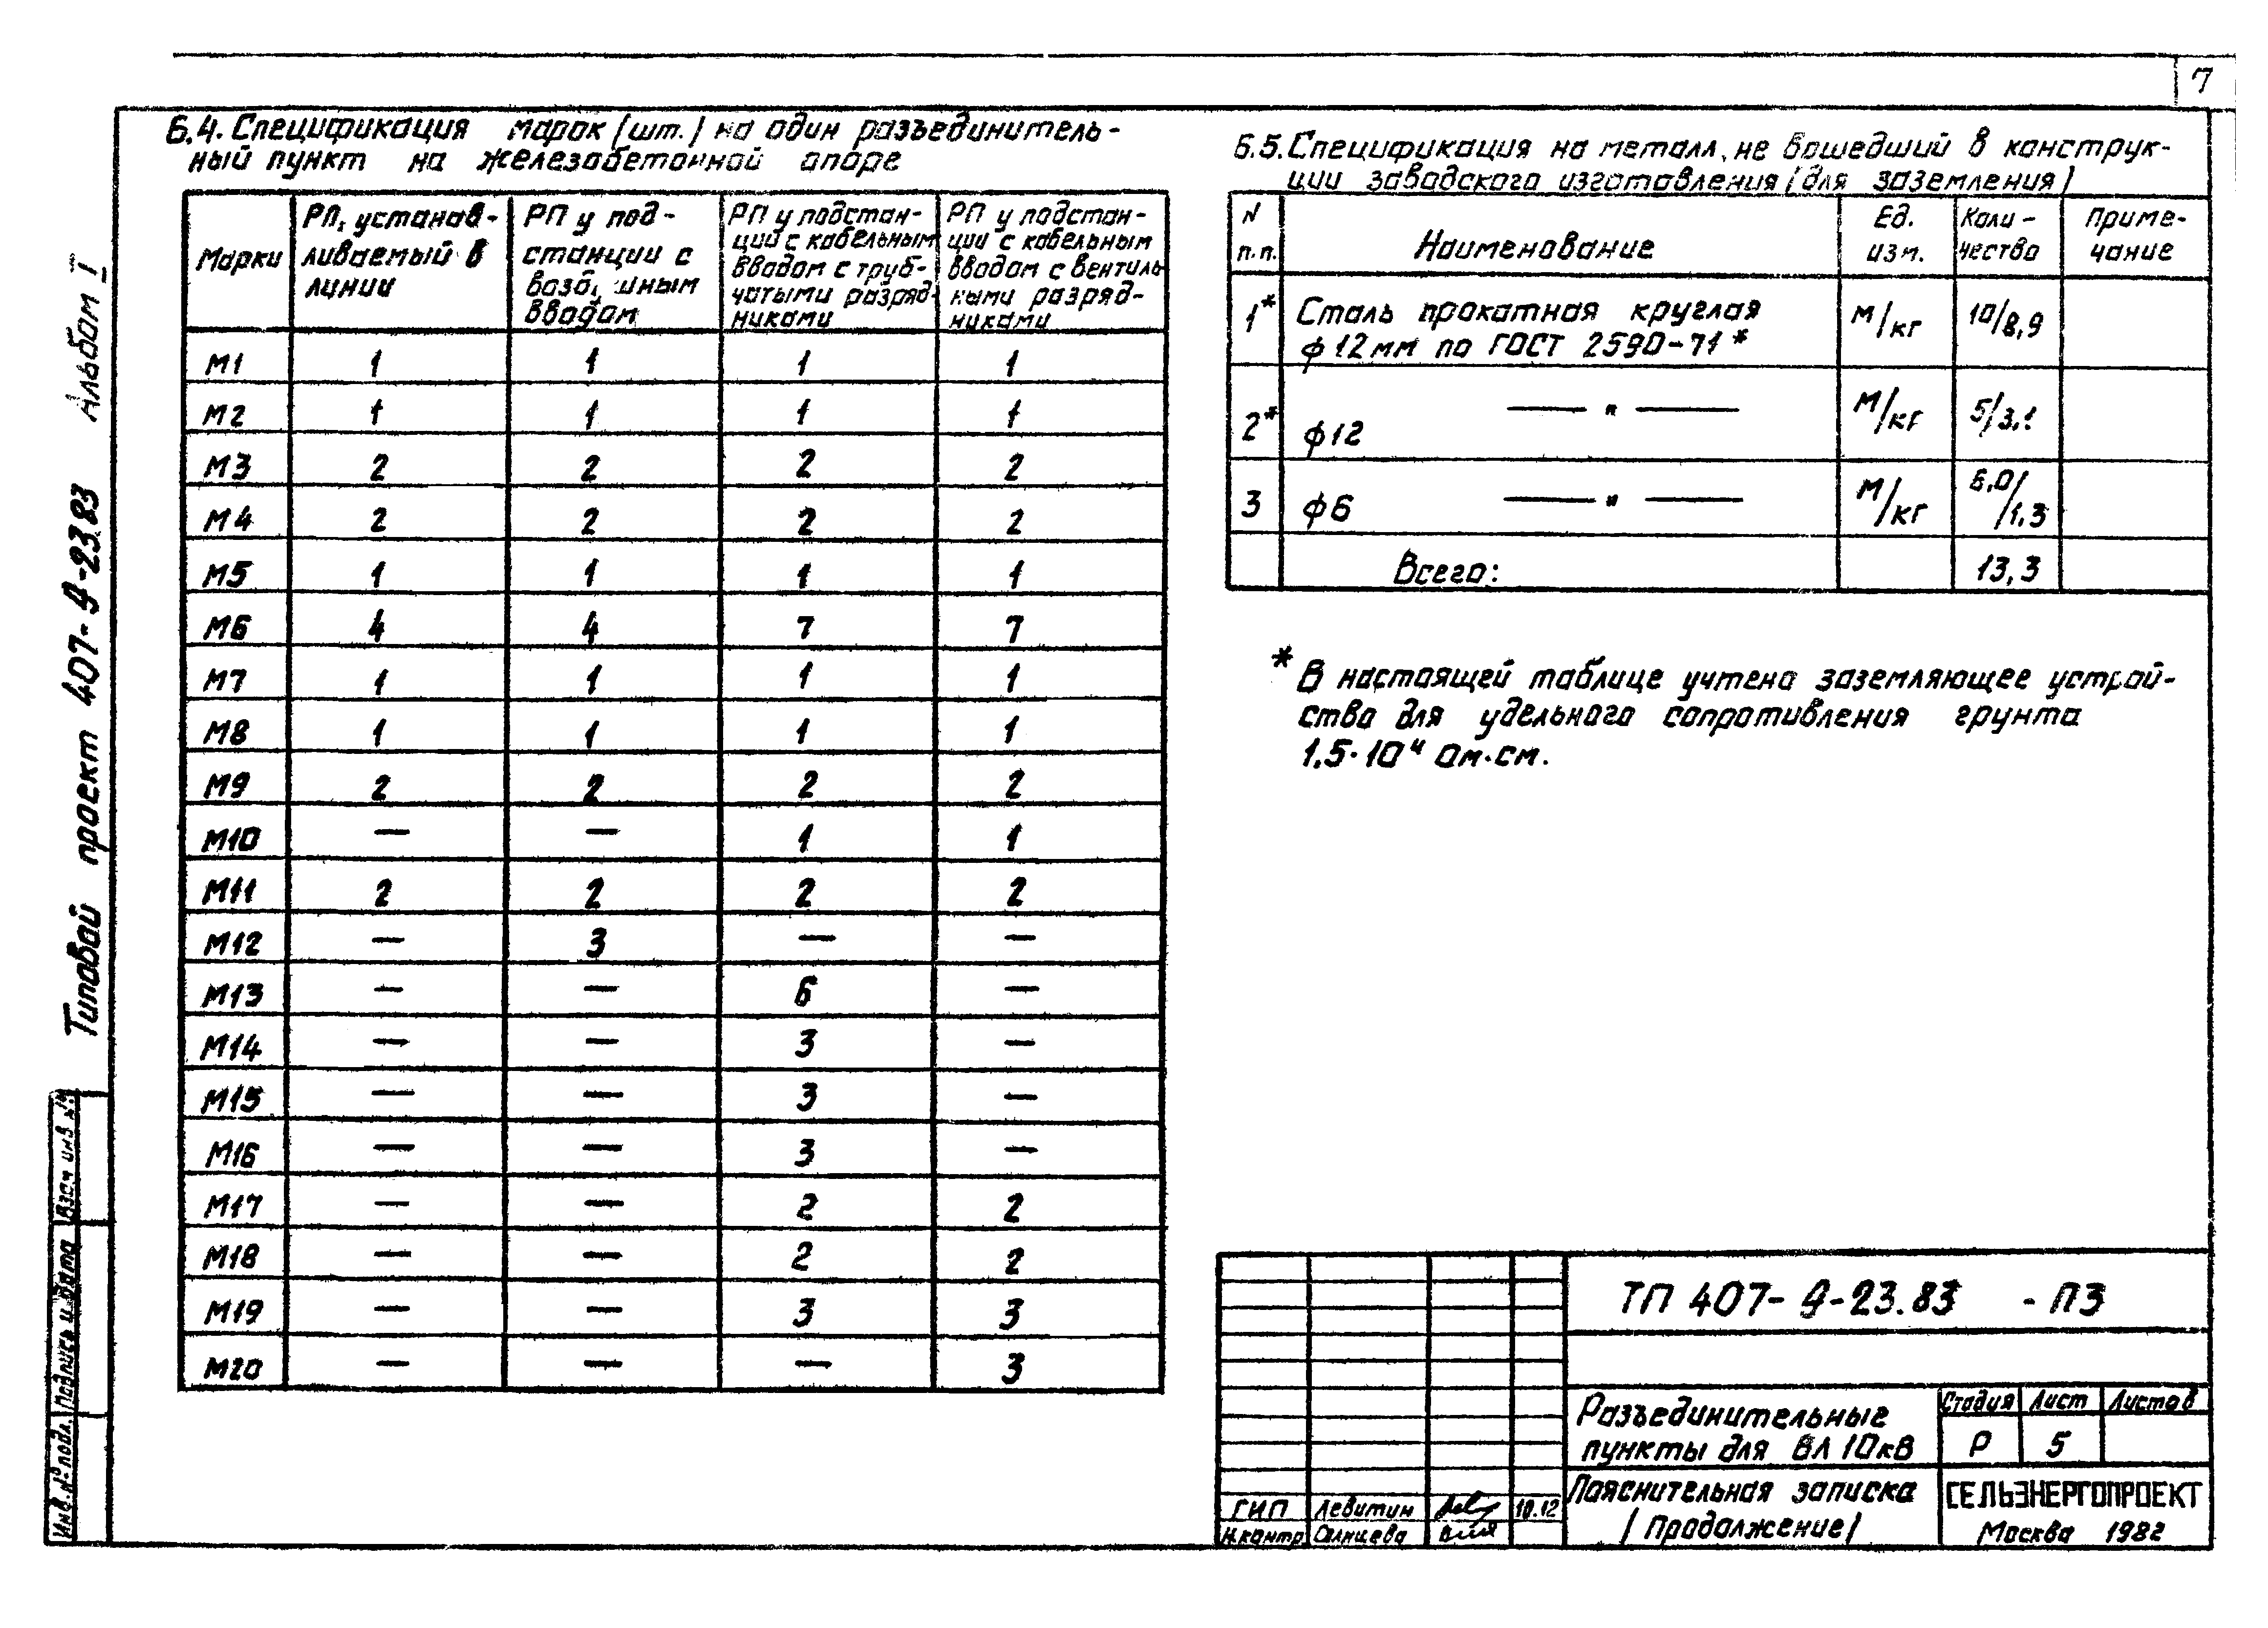 7
6.4. Спецификация марок (шт.) на один разъединитель-
ный пункт на железобетонной опоре
Марки
РП, устанав-
ливаемый в
линии
РП у под-
станции с
вводом
РП у подстан-
ции с кабельным
вводом с труб-
чатыми разряд-
никами
РП у подстан-
ции с кабельным
вводом с вентиль-
ными разряд-
никами
М1 1 1 1 1
М2 1 1 1 1
М3 2 2 2 2
М4 2 2 2 2
М5 1 1 1 1
М6 4 4 7 7
М7 1 1 1 1
М8 1 1 1 1
М9 2 2 2 2
М10 — — 1 1
М11 2 2 2 2
М12 — 3 — —
М13 — — 6 —
М14 — — 3 —
М15 — — 3 —
М16 — — 3 —
М17 — — 2 2
М18 — — 2 2
М19 — — 3 3
М20 — — — 3
6.5. Спецификация на металл, не вошедший в конструк-
ции заводского изготовления (для заземления)
N
п.п.
Наименование
Ед.
изм.
Коли-
чество
Приме-
чание
1* Сталь прокатная круглая м/кг 10/8,9
ф 12 мм по ГОСТ 2590-71*
2* ф12 — " — м/кг 5/3.1
3 ф6 — " — м/кг 6,0/1.3
Всего: 13,3
* В настоящей таблице учтено заземляющее устрой-
ство для удельного сопротивления грунта
1.5·10⁴ Ом·см.
ТП 407-9-23.83 - ПЗ
Разъединительные
пункты для ВЛ 10кВ
Стадия Лист Листов
Р 5
Пояснительная записка
(Продолжение)
СЕЛЬЭНЕРГОПРОЕКТ
Москва 1982
ГИП Левитин 10.12
Н.контр. Солнцева
Типовой проект 407-9-23.83 Альбом I
Взам инв №
Подпись и дата
Инв. № подл.